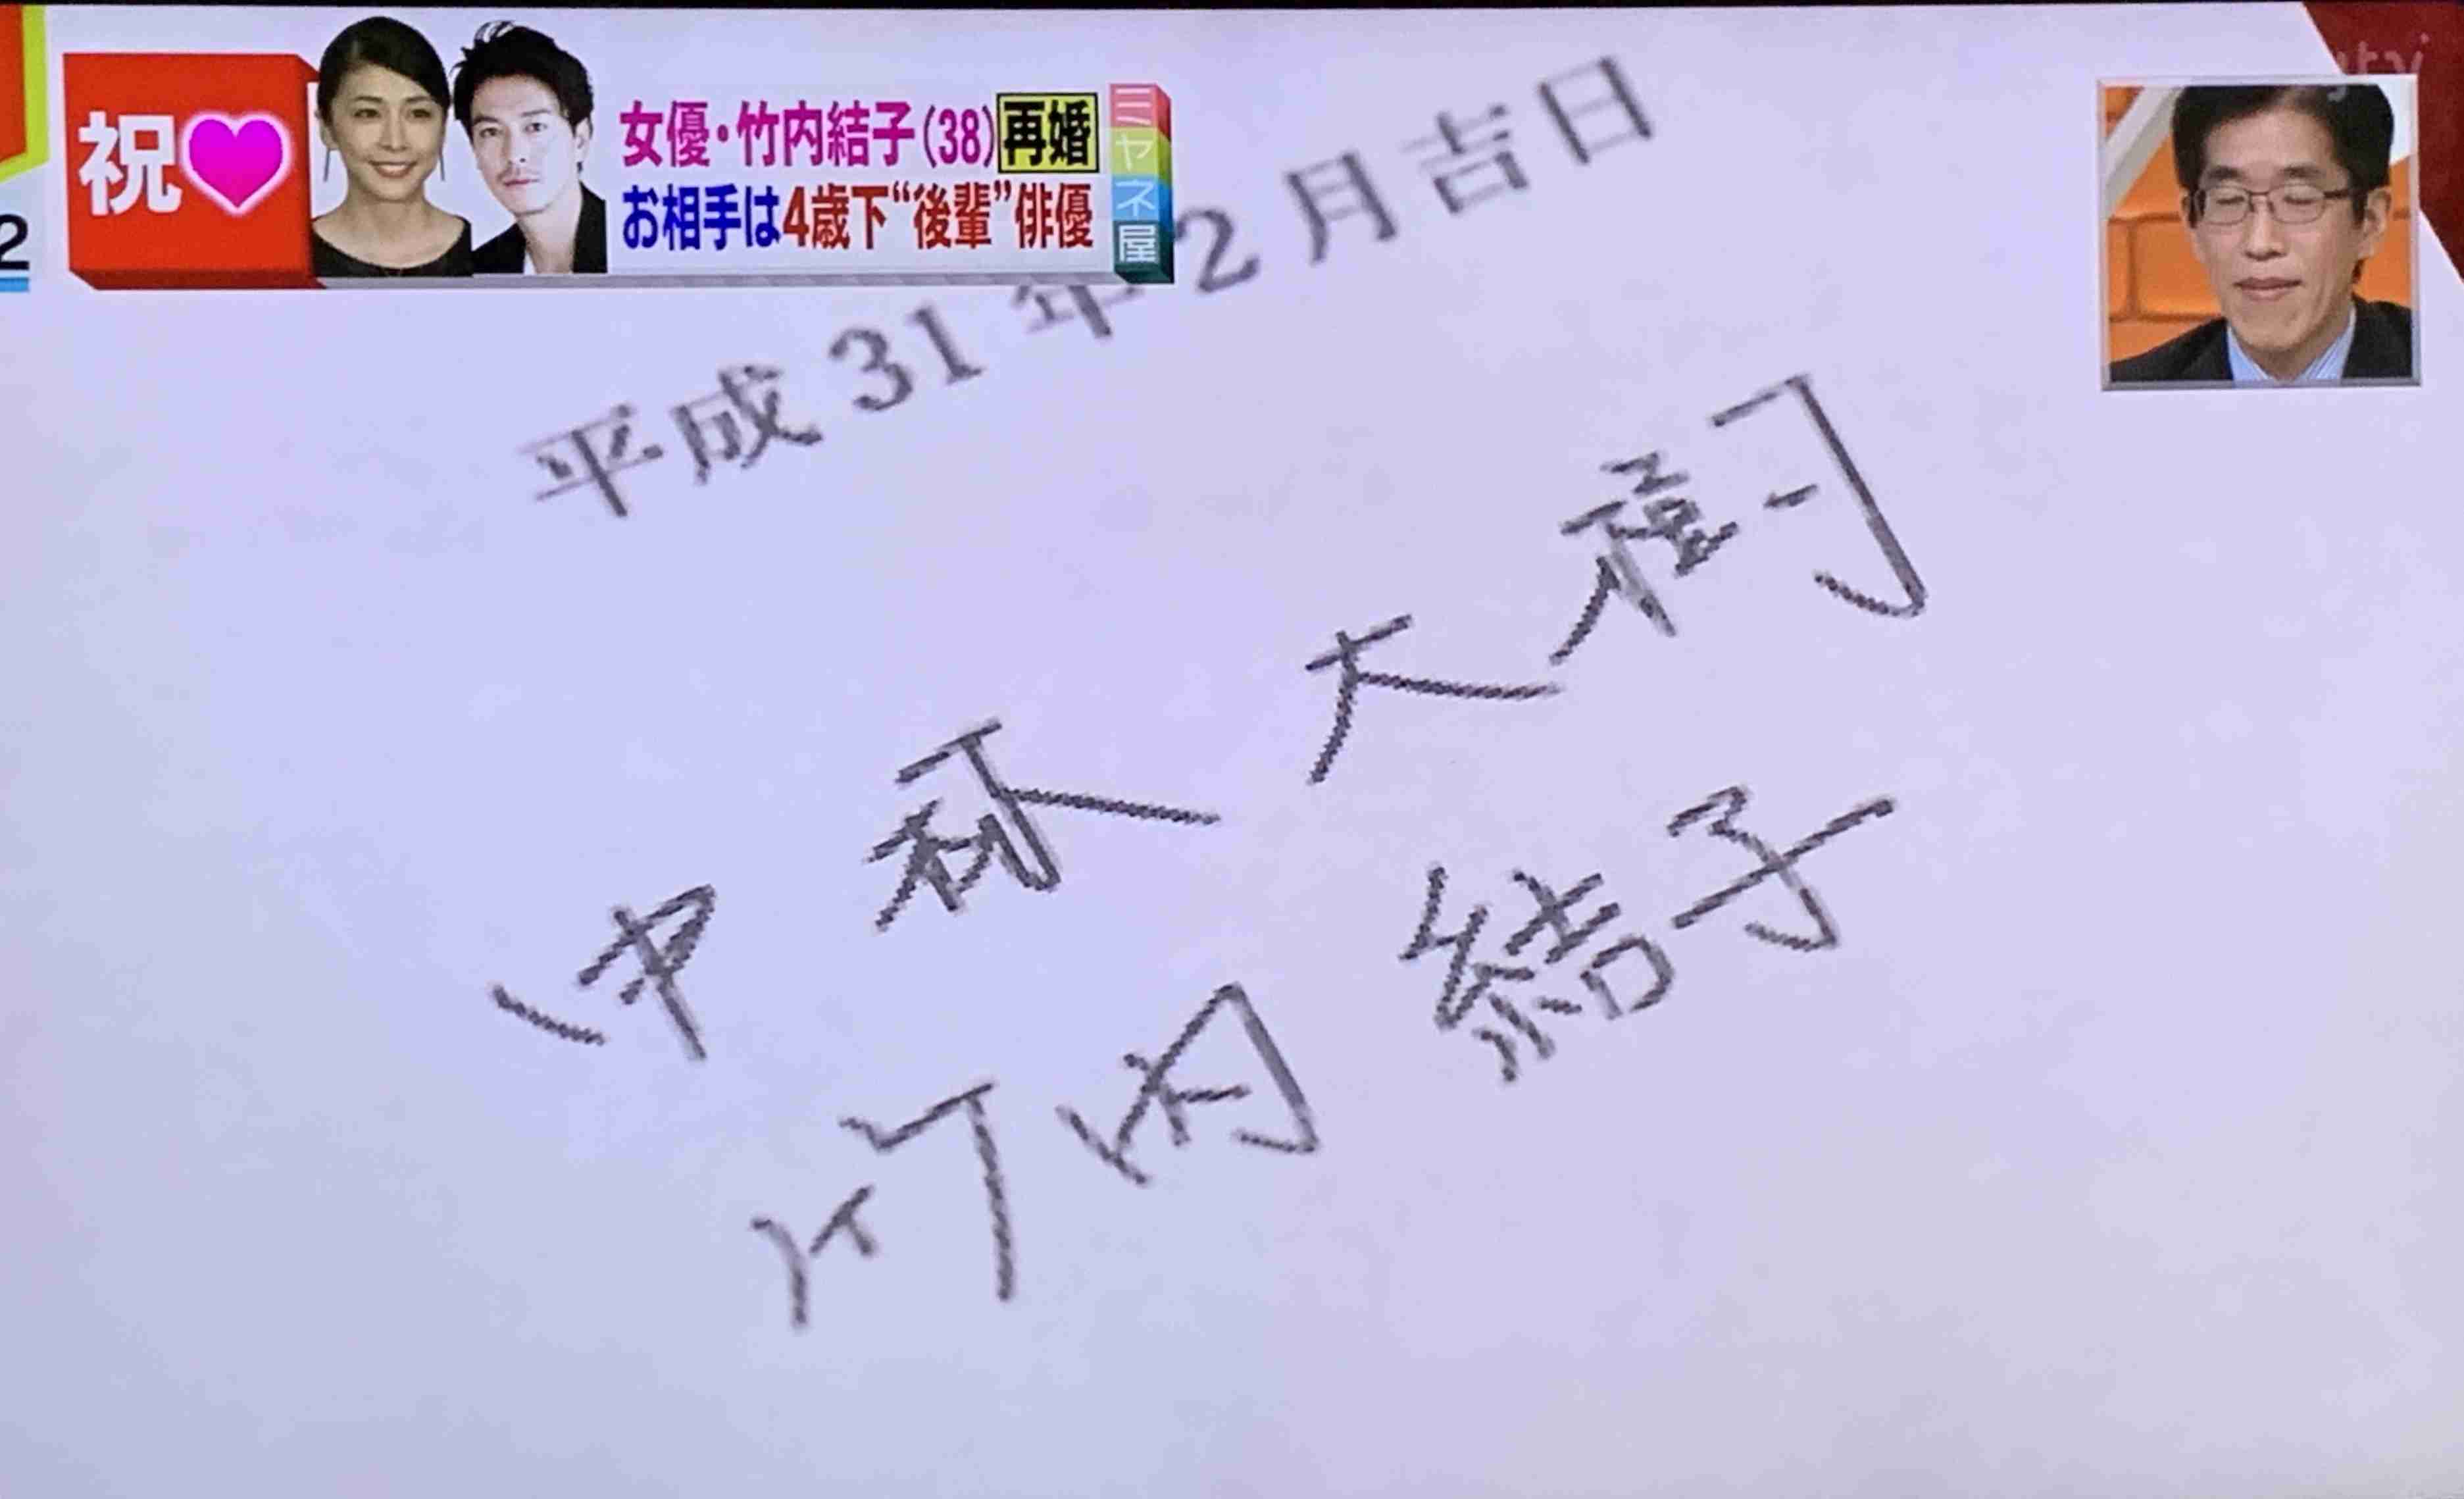 祝
女優・竹内結子(38)再婚
お相手は4歳下“後輩”俳優
ミヤネ屋
ytv
2
平成31年2月吉日
中林 大樹
竹内 結子